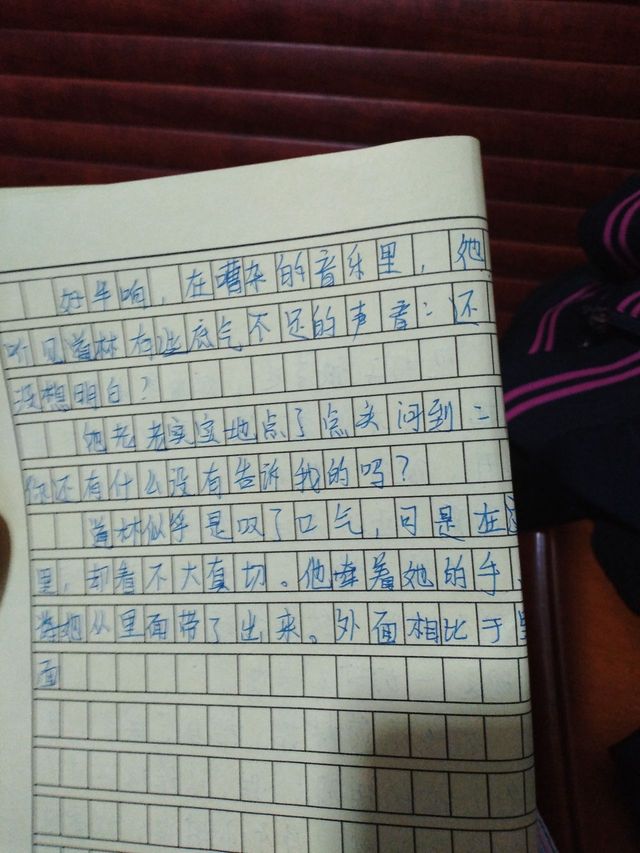 好半响，在嘈杂的音乐里，她
听见道林有些底气不足的声音：还
没想明白？
她老老实实地点了点头问到：
你还有什么没有告诉我的吗？
道林似乎是叹了口气，可是在这
里，却看不大真切。他牵着她的手，
将她从里面带了出来。外面相比于里
面